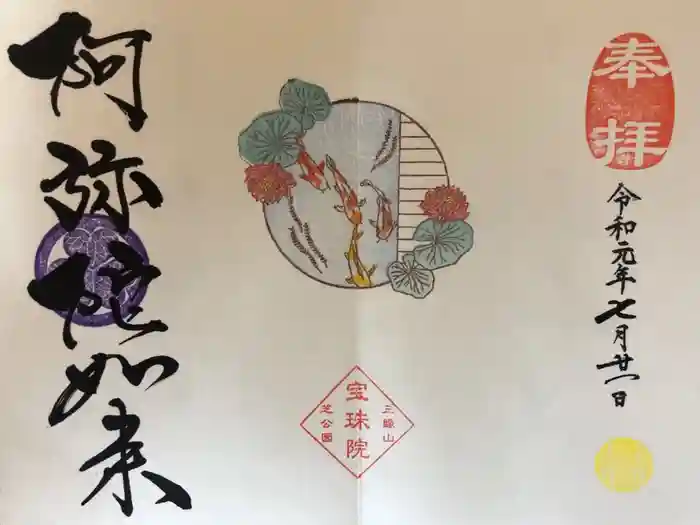 奉拝
令和元年七月廿一日
三縁山
宝珠院
芝公園
阿弥陀如来